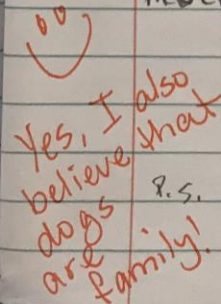 Yes, I also
believe that
dogs
are
family!
P.S.